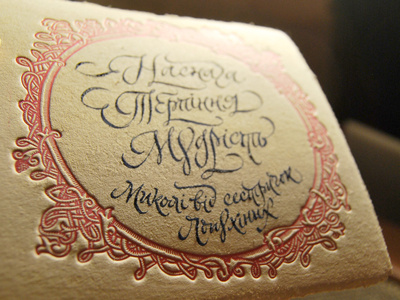 Наснага
Терпіння
Мудрість
Миколі від сестричок
Лопухіних